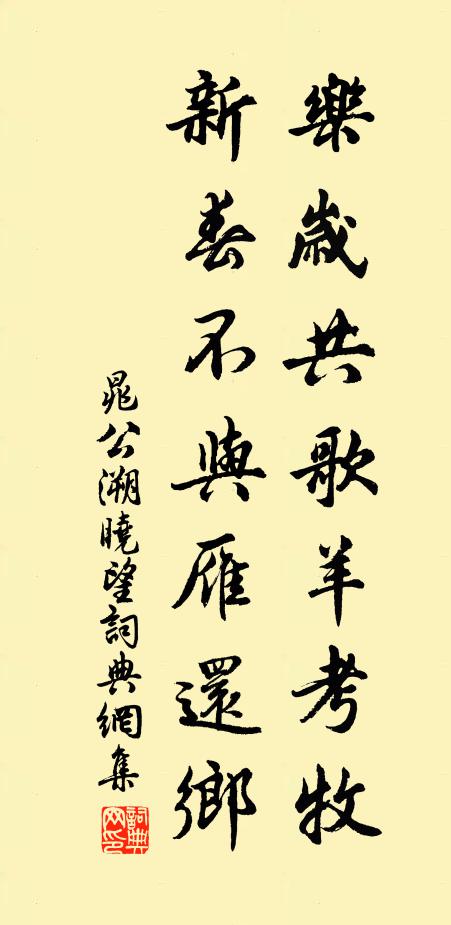 樂歲共歌羊考牧
新春不與雁還鄉
晁公溯曉望詞典網集
詞典网印